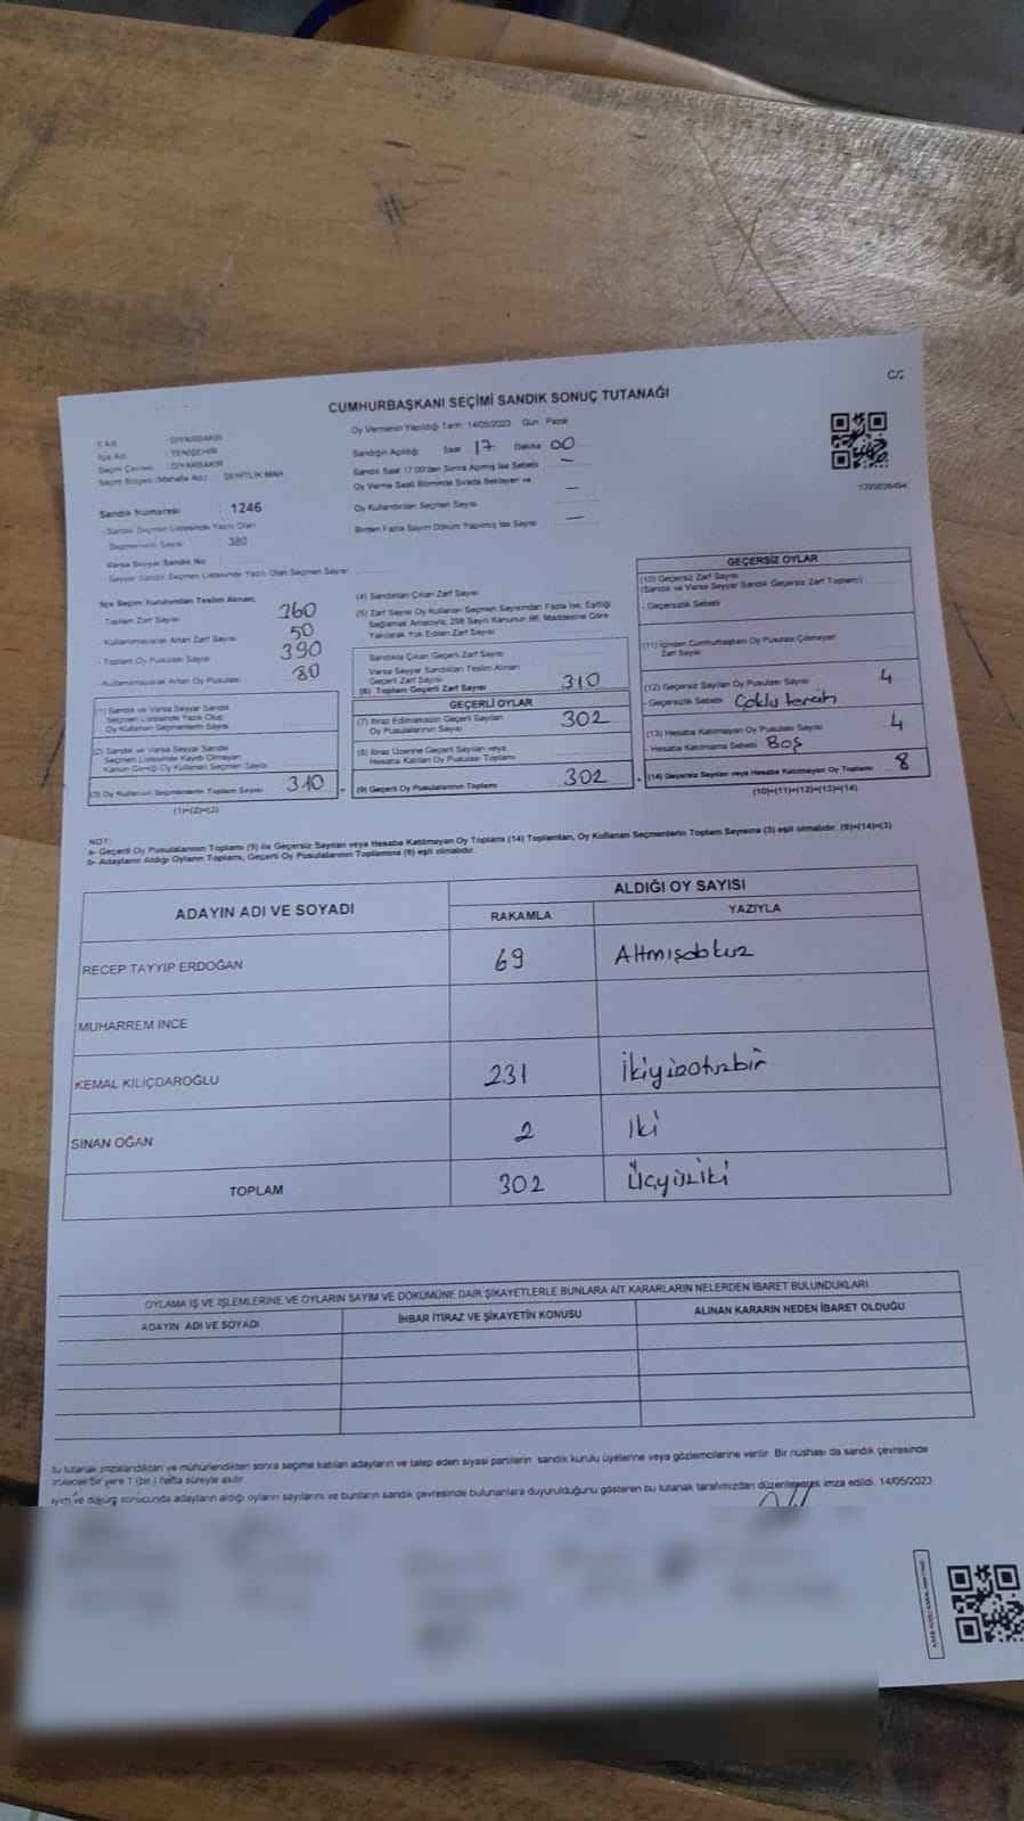 C/:
CUMHURBAŞKANI SEÇİMİ SANDIK SONUÇ TUTANAĞI
İl Adı : DİYARBAKIR
İlçe Adı : YENİŞEHİR
Seçim Çevresi : DİYARBAKIR
Seçim Bölgesi (Mahalle Adı) : ŞEHİTLİK MAH.
Oy Vermenin Yapıldığı Tarih: 14/05/2023 Gün: Pazar
Sandığın Açıldığı Saat 17 Dakika 00
Sandık Saat 17:00'den Sonra Açılmış İse Sebebi —
Oy Verme Saati Bitiminde Sırada Bekleyen ve
Oy Kullandırılan Seçmen Sayısı —
Birden Fazla Sayım Döküm Yapılmış İse Sayısı —
Sandık Numarası : 1246
Sandık Seçmen Listesinde Yazılı Olan
Seçmenlerin Sayısı : 380
Varsa Seyyar Sandık No :
Seyyar Sandık Seçmen Listesinde Yazılı Olan Seçmen Sayısı:
İlçe Seçim Kurulundan Teslim Alınan;
Toplam Zarf Sayısı 360
Kullanılmayarak Artan Zarf Sayısı 50
Toplam Oy Pusulası Sayısı 390
Kullanılmayarak Artan Oy Pusulası 80
(1) Sandık ve Varsa Seyyar Sandık
Seçmen Listesinde Yazılı Olup
Oy Kullanan Seçmenlerin Sayısı
(2) Sandık ve Varsa Seyyar Sandık
Seçmen Listesinde Kaydı Olmayan
Kanun Gereği Oy Kullanan Seçmen Sayısı
(3) Oy Kullanan Seçmenlerin Toplam Sayısı 310
(1)+(2)=(3)
(4) Sandıktan Çıkan Zarf Sayısı
(5) Zarf Sayısı Oy Kullanan Seçmen Sayısından Fazla İse, Eşitliği
Sağlamak Amacıyla, 298 Sayılı Kanunun 98. Maddesine Göre
Yakılarak Yok Edilen Zarf Sayısı
Sandıkta Çıkan Geçerli Zarf Sayısı
Varsa Seyyar Sandıktan Teslim Alınan
Geçerli Zarf Sayısı
(6) Toplam Geçerli Zarf Sayısı 310
GEÇERLİ OYLAR
(7) İtiraz Edilmeksizin Geçerli Sayılan
Oy Pusulalarının Sayısı 302
(8) İtiraz Üzerine Geçerli Sayılan veya
Hesaba Katılan Oy Pusulası Toplamı
(9) Geçerli Oy Pusulalarının Toplamı 302
GEÇERSİZ OYLAR
(10) Geçersiz Zarf Sayısı
(Sandık ve Varsa Seyyar Sandık Geçersiz Zarf Toplamı)
- Geçersizlik Sebebi
(11) İçinden Cumhurbaşkanı Oy Pusulası Çıkmayan
Zarf Sayısı
(12) Geçersiz Sayılan Oy Pusulası Sayısı 4
- Geçersizlik Sebebi Çoklu tercih
(13) Hesaba Katılmayan Oy Pusulası Sayısı 4
- Hesaba Katılmama Sebebi Boş
(14) Geçersiz Sayılan veya Hesaba Katılmayan Oy Toplamı 8
(10)+(11)+(12)+(13)=(14)
NOT:
a- Geçerli Oy Pusulalarının Toplamı (9) ile Geçersiz Sayılan veya Hesaba Katılmayan Oy Toplamı (14) Toplamları, Oy Kullanan Seçmenlerin Toplam Sayısına (3) eşit olmalıdır. (9)+(14)=(3)
b- Adayların Aldığı Oyların Toplamı, Geçerli Oy Pusulalarının Toplamına (9) eşit olmalıdır.
ADAYIN ADI VE SOYADI
ALDIĞI OY SAYISI
RAKAMLA YAZIYLA
RECEP TAYYİP ERDOĞAN 69 Altmışdokuz
MUHARREM İNCE
KEMAL KILIÇDAROĞLU 231 İkiyüzotuzbir
SİNAN OĞAN 2 İki
TOPLAM 302 Üçyüziki
OYLAMA İŞ VE İŞLEMLERİNE VE OYLARIN SAYIM VE DÖKÜMÜNE DAİR ŞİKAYETLERLE BUNLARA AİT KARARLARIN NELERDEN İBARET BULUNDUKLARI
ADAYIN ADI VE SOYADI İHBAR İTİRAZ VE ŞİKAYETİN KONUSU ALINAN KARARIN NEDEN İBARET OLDUĞU
Bu tutanak imzalandıktan ve mühürlendikten sonra seçime katılan adayların ve talep eden siyasi partilerin sandık kurulu üyelerine veya gözlemcilerine verilir. Bir nüshası da sandık çevresinde
bir yere 1 (bir) hafta süreyle asılır.
ve döküm sonucunda adayların aldığı oyların sayılarını ve bunların sandık çevresinde bulunanlara duyurulduğunu gösteren bu tutanak tarafımızdan düzenlenerek imza edildi. 14/05/2023